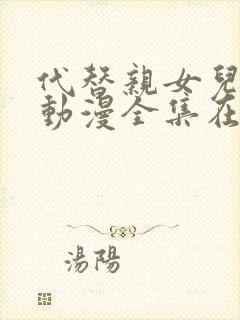 代替親女兒
動漫全集在
湯陽